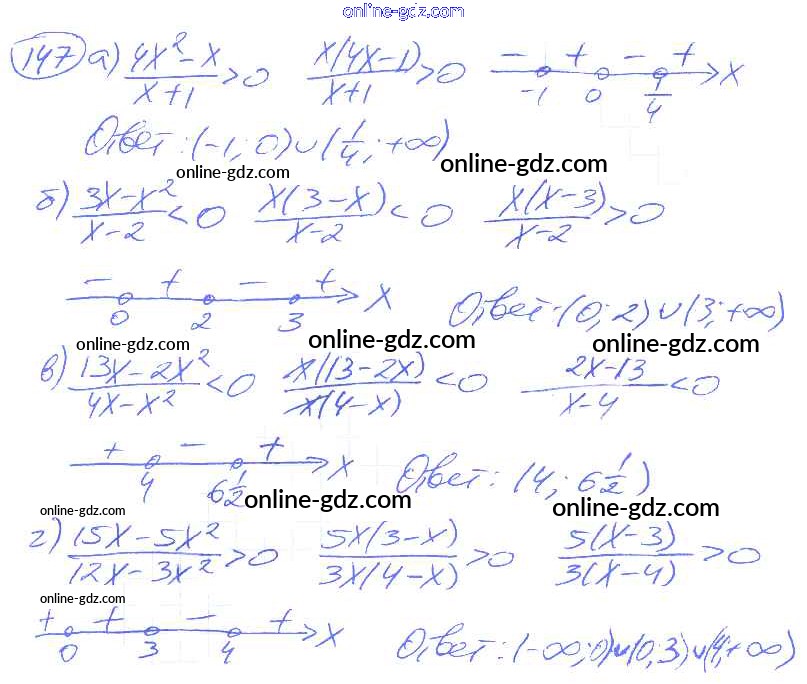 online-gdz.com
147 а) (4x² - x)/(x+1) > 0   x(4x-1)/(x+1) > 0   - + - + x
-1 0 1/4
Ответ: (-1; 0) ∪ (1/4; +∞)
online-gdz.com online-gdz.com
б) (3x - x²)/(x-2) < 0   x(3-x)/(x-2) < 0   x(x-3)/(x-2) > 0
- + - + x
0 2 3   Ответ: (0; 2) ∪ (3; +∞)
online-gdz.com online-gdz.com online-gdz.com
в) (13x - 2x²)/(4x - x²) < 0   x(13-2x)/x(4-x) < 0   (2x-13)/(x-4) < 0
+ - + x
4 6 1/2   Ответ: (4; 6 1/2)
online-gdz.com online-gdz.com online-gdz.com
г) (15x - 5x²)/(12x - 3x²) > 0   5x(3-x)/3x(4-x) > 0   5(x-3)/3(x-4) > 0
online-gdz.com
+ + - + x
0 3 4   Ответ: (-∞; 0) ∪ (0, 3) ∪ (4; +∞)